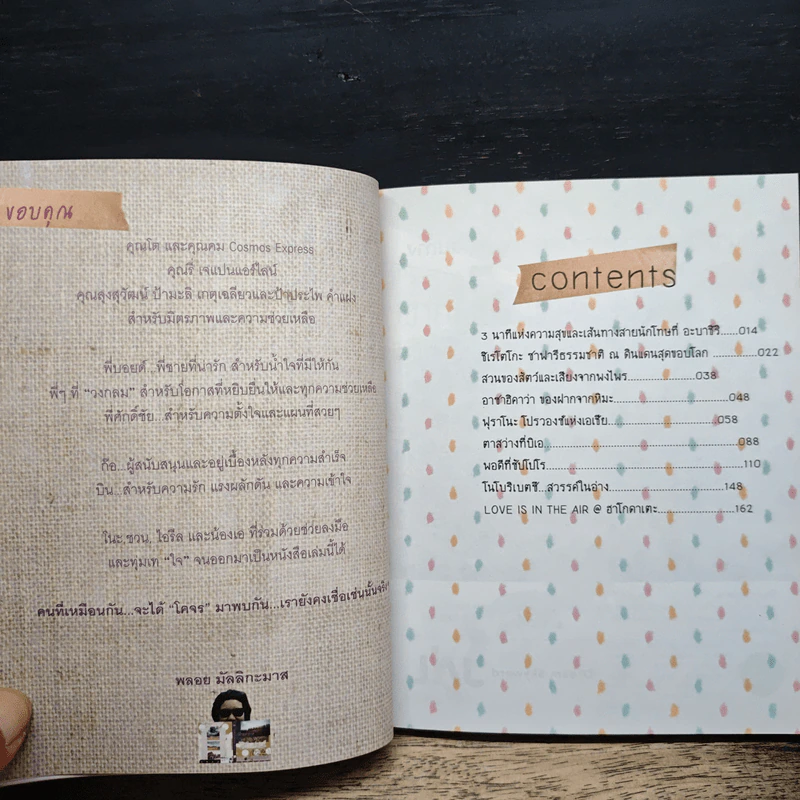 ขอบคุณ
คุณโต และคุณคม Cosmos Express
คุณรี่ เจแปนแอร์ไลน์
คุณลุงสุวัฒน์ ป้ามะลิ เกตุเฉลียวและป้าประไพ คำแฝง
สำหรับมิตรภาพและความช่วยเหลือ
พี่บอยด์...พี่ชายที่น่ารัก สำหรับน้ำใจที่มีให้กัน
พี่ๆ ที่ “วงกลม” สำหรับโอกาสที่หยิบยื่นให้และทุกความช่วยเหลือ
พี่ศักดิ์ชัย...สำหรับความตั้งใจและแผนที่สวยๆ
ก๊อ...ผู้สนับสนุนและอยู่เบื้องหลังทุกความสำเร็จ
บิน...สำหรับความรัก แรงผลักดัน และความเข้าใจ
โนะ ชวน, ไอรีล และน้องเอ ที่ร่วมด้วยช่วยลงมือ
และทุ่มเท “ใจ” จนออกมาเป็นหนังสือเล่มนี้ได้
คนที่เหมือนกัน...จะได้ “โคจร” มาพบกัน...เรายังคงเชื่อเช่นนั้นจริงๆ
พลอย มัลลิกะมาส
contents
3 นาทีแห่งความสุขและเส้นทางสายนักโทษที่ อะบาชิริ......014
ชิเรโตโกะ ซาฟารีธรรมชาติ ณ ดินแดนสุดขอบโลก ............022
สวนของสัตว์และเสียงจากพงไพร....................038
อาซาฮิคาว่า ของฝากจากหิมะ.................................048
ฟุราโนะ โปรวองซ์แห่งเอเชีย................................058
ตาสว่างที่บิเอ........................................................088
พอดีที่ซัปโปโร.......................................................110
โนโบริเบตซึ...สวรรค์ในอ่าง.................................148
LOVE IS IN THE AIR @ ฮาโกดาเตะ.......................162